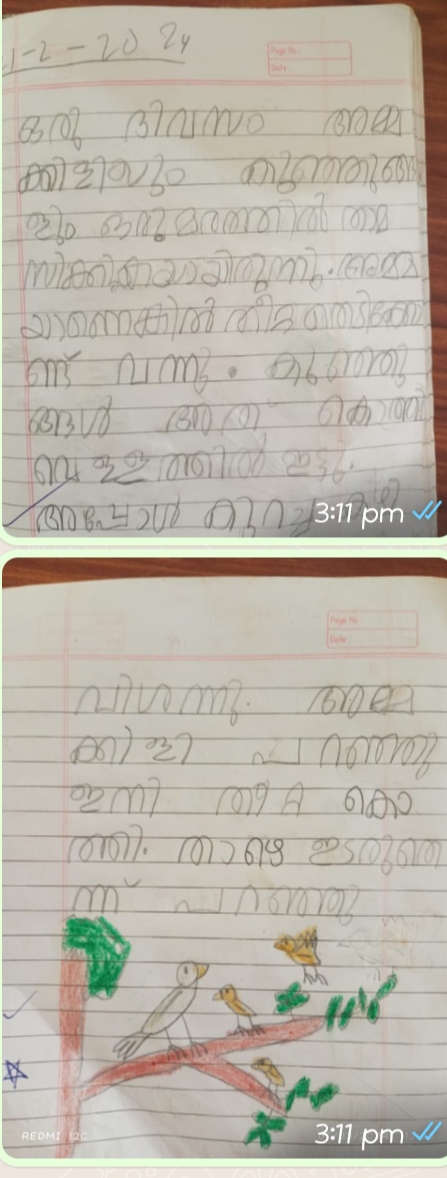 -2-2024
Page No:
Date:
ഒരു ദിവസം അമ്മ
ക്കിളിയും കുഞ്ഞുങ്ങ
ളും ഒരു മരത്തിൽ താമ
സിക്കുകയായിരുന്നു. അമ്മ
യാണെങ്കിൽ തീറ്റ
ണ്ട് വന്നു. കുഞ്ഞു
ങ്ങൾ അത് കൊത്തി
വെള്ളത്തിൽ ഇട്ടു.
അപ്പോൾ കുറച്ച്
3:11 pm
Page No:
Date:
വിശന്നു. അമ്മ
ക്കിളി പറഞ്ഞു
ഇനി തീറ്റ കൊ
ത്തി. താഴെ ഇടരുതെ
ന്ന് പറഞ്ഞു
REDMI 12C
3:11 pm